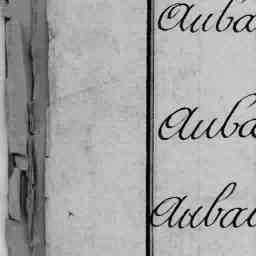 Auba
Auba
Aubai